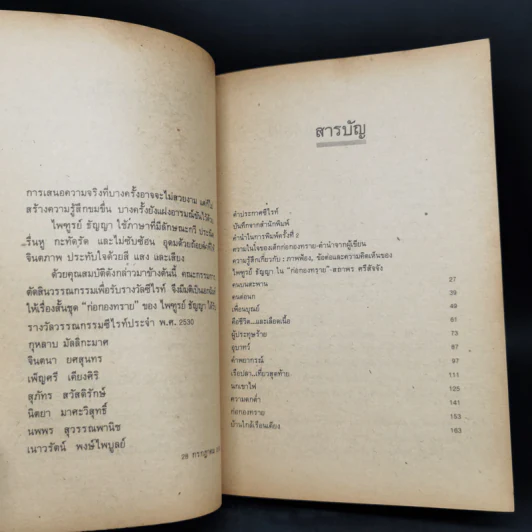 การเสนอความจริงที่บางครั้งอาจจะไม่สวยงาม แต่ก็
สร้างความรู้สึกขมขื่น บางครั้งยังแฝงอารมณ์ขันไว้ด้วย
ไพฑูรย์ ธัญญา ใช้ภาษาที่มีลักษณะกวี ประณีต
รื่นหู กะทัดรัด และไม่ซับซ้อน อุดมด้วยถ้อยคำ
จินตภาพ ประทับใจด้วยสี แสง และเสียง
ด้วยคุณสมบัติดังกล่าวมาข้างต้นนี้ คณะกรรมการ
ตัดสินวรรณกรรมเพื่อรับรางวัลซีไรท์ จึงมีมติเป็นเอกฉันท์
ให้เรื่องสั้นชุด "ก่อกองทราย" ของ ไพฑูรย์ ธัญญา ได้รับ
รางวัลวรรณกรรมซีไรท์ประจำ พ.ศ. 2530
กุหลาบ มัลลิกะมาส
จินตนา ยศสุนทร
เพ็ญศรี เคียงศิริ
สุภัทร สวัสดิรักษ์
นิตยา มาศะวิสุทธิ์
นพพร สุวรรณพานิช
เนาวรัตน์ พงษ์ไพบูลย์
29 กรกฎาคม
สารบัญ
คำประกาศซีไรท์
บันทึกจากสำนักพิมพ์
คำนำในการพิมพ์ครั้งที่ ๕
ความในใจของเด็กก่อกองทราย-คำนำจากผู้เขียน
ความรู้สึกเกี่ยวกับ : ภาพพ้อง, ข้อต่อและความคิดเห็นของ
ไพฑูรย์ ธัญญา ใน "ก่อกองทราย"-สถาพร ศรีสัจจัง
คนบนสะพาน 27
คนต่อนก 39
เพื่อนบุณย์ 49
คือชีวิต...และเลือดเนื้อ 61
ผู้ประทุษร้าย 73
อุบาทว์ 87
คำพยากรณ์ 97
เรือปลา...เที่ยวสุดท้าย 111
นกเขาไฟ 125
ความตกต่ำ 141
ก่อกองทราย 153
บ้านใกล้เรือนเคียง 163